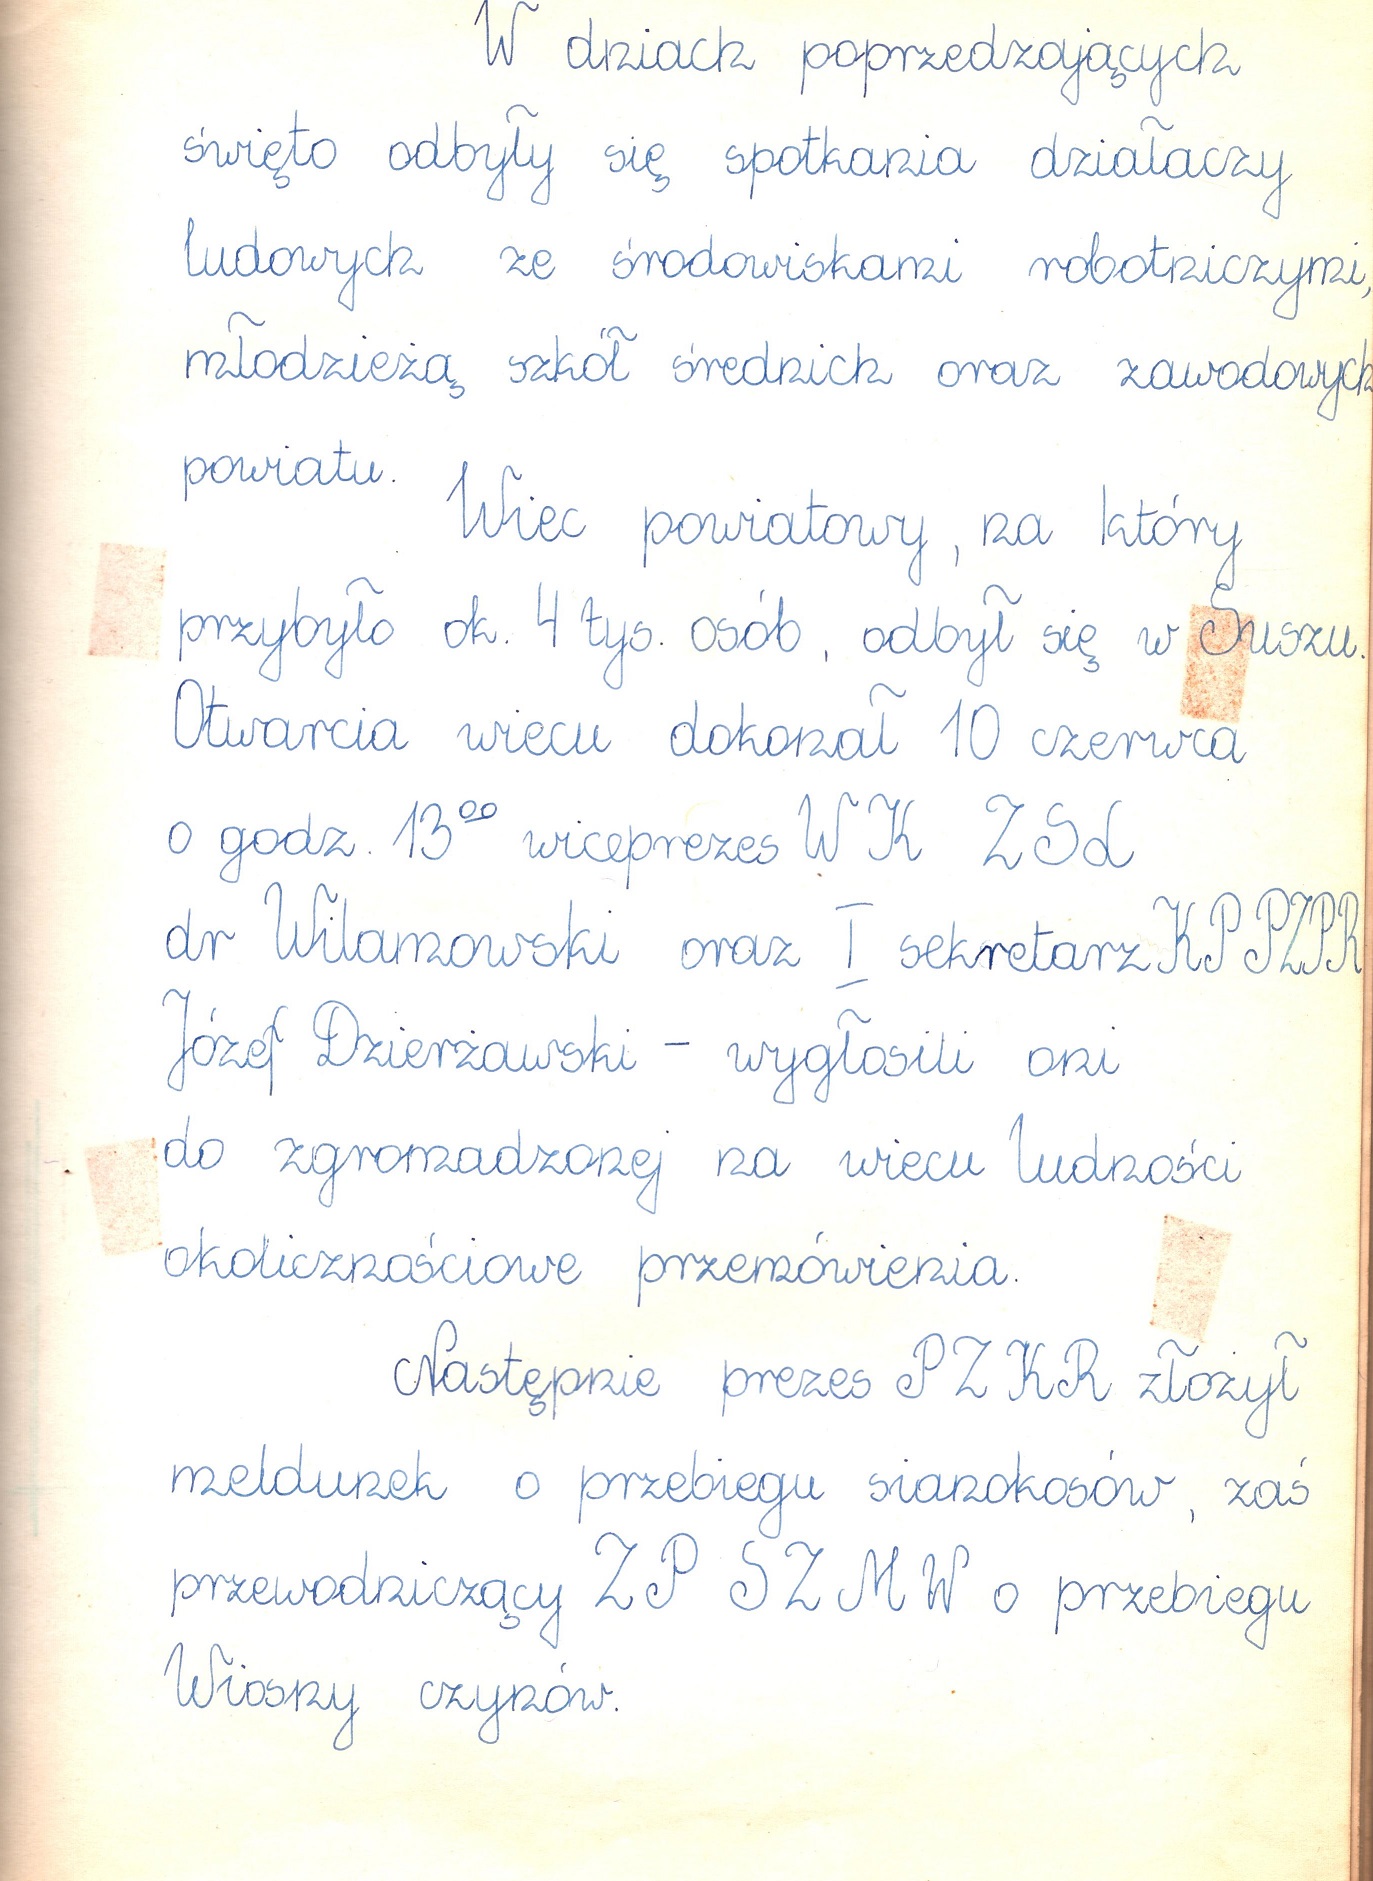 W dniach poprzedzających
święto odbyły się spotkania działaczy
ludowych ze środowiskami robotniczymi,
młodzieżą szkół średnich oraz zawodowych
powiatu.
Wiec powiatowy, na który
przybyło ok. 4 tys. osób, odbył się w Suszu.
Otwarcia wiecu dokonał 10 czerwca
o godz. 13⁰⁰ wiceprezes WK ZSL
dr Wilamowski oraz I sekretarz KP PZPR
Józef Dzierżawski – wygłosili oni
do zgromadzonej na wiecu ludności
okolicznościowe przemówienia.
Następnie prezes PZKR złożył
meldunek o przebiegu sianokosów, zaś
przewodniczący ZP SZMW o przebiegu
Wiosny czynów.